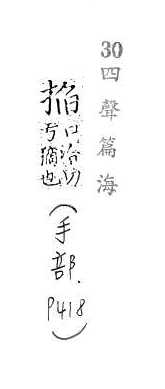 30 四聲篇海
掐 口洽切
也
(手部. P418)